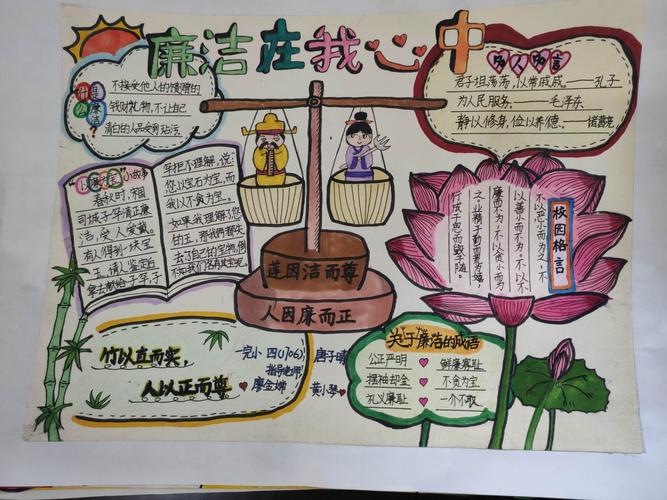 廉洁在我心中
什么是廉洁?
不接受他人的馈赠的
钱财礼物,不让自己
清白的人品受到玷污。
名人名言
君子坦荡荡,小人常戚戚。——孔子
为人民服务。——毛泽东
静以修身,俭以养德。——诸葛亮
"以廉为宝"小故事
春秋时,宋国
司城子罕清正廉
洁,受人爱戴。
有人得到一块宝
玉,请人鉴定后
拿去献给子罕,子
罕拒不理解,说:
您以宝石为宝,而
我以不贪为宝。
如果我理解了您
的玉,那我们都失
去了自己的宝物,倒
不如我们各有其宝呢
莲因洁而尊
人因廉而正
校园格言
不以恶小而为之,不
以善小而不为,不以不
廉而不为,不以贪小而为
之,业精于勤荒于嬉,
行成于思而毁于随。
竹以直而实,
人以正而尊
一完小 四(1)(06) 唐子晴
指导老师
廖金娣 黄小琴
关于廉洁的成语
公正严明 鲜廉寡耻
摆袖却金 不贪为宝
礼义廉耻 一介不取